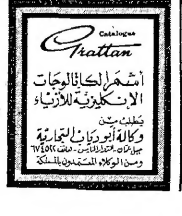 Catalogue
Grattan
أشهر الكاتالوجات
الإنكليزية للأزياء
يطلب من
وكالة أبو رياب التجارية
ومن الوكلاء المعتمدين بالمملكة